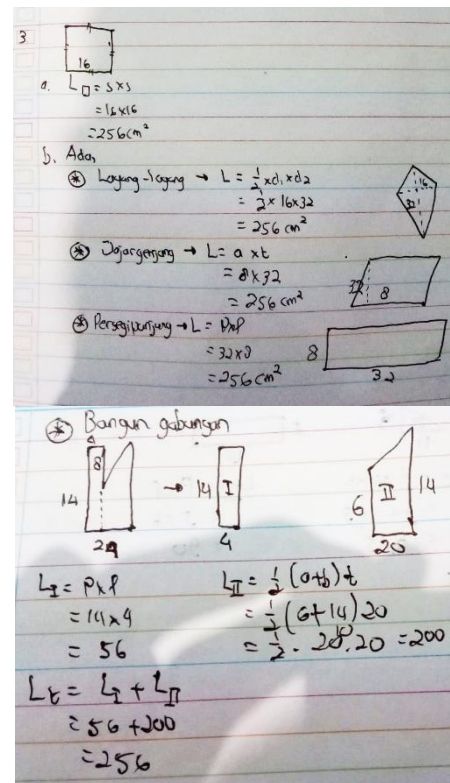 3
16
a. L□ = s x s
= 16 x 16
= 256 cm²
b. Ada,
* Layang-layang → L = 1/2 x d1 x d2
= 1/2 x 16 x 32
= 256 cm²
16
32
* Jajargenjang → L = a x t
= 8 x 32
= 256 cm²
32
8
* Persegipanjang → L = p x l
= 32 x 8
= 256 cm²
8
32
* Bangun gabungan
4
8
14
24
→ 14 I
4
6 II 14
20
L I = p x l
= 14 x 4
= 56
L II = 1/2 (a+b) t
= 1/2 (6+14) 20
= 1/2 . 20 . 20 = 200
10
Lt = L I + L II
= 56 + 200
= 256